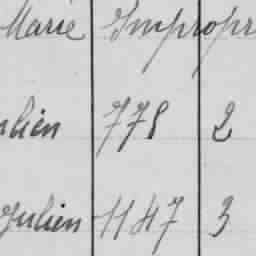 Marie Impropr
ulien 778 2
Julien 1147 3